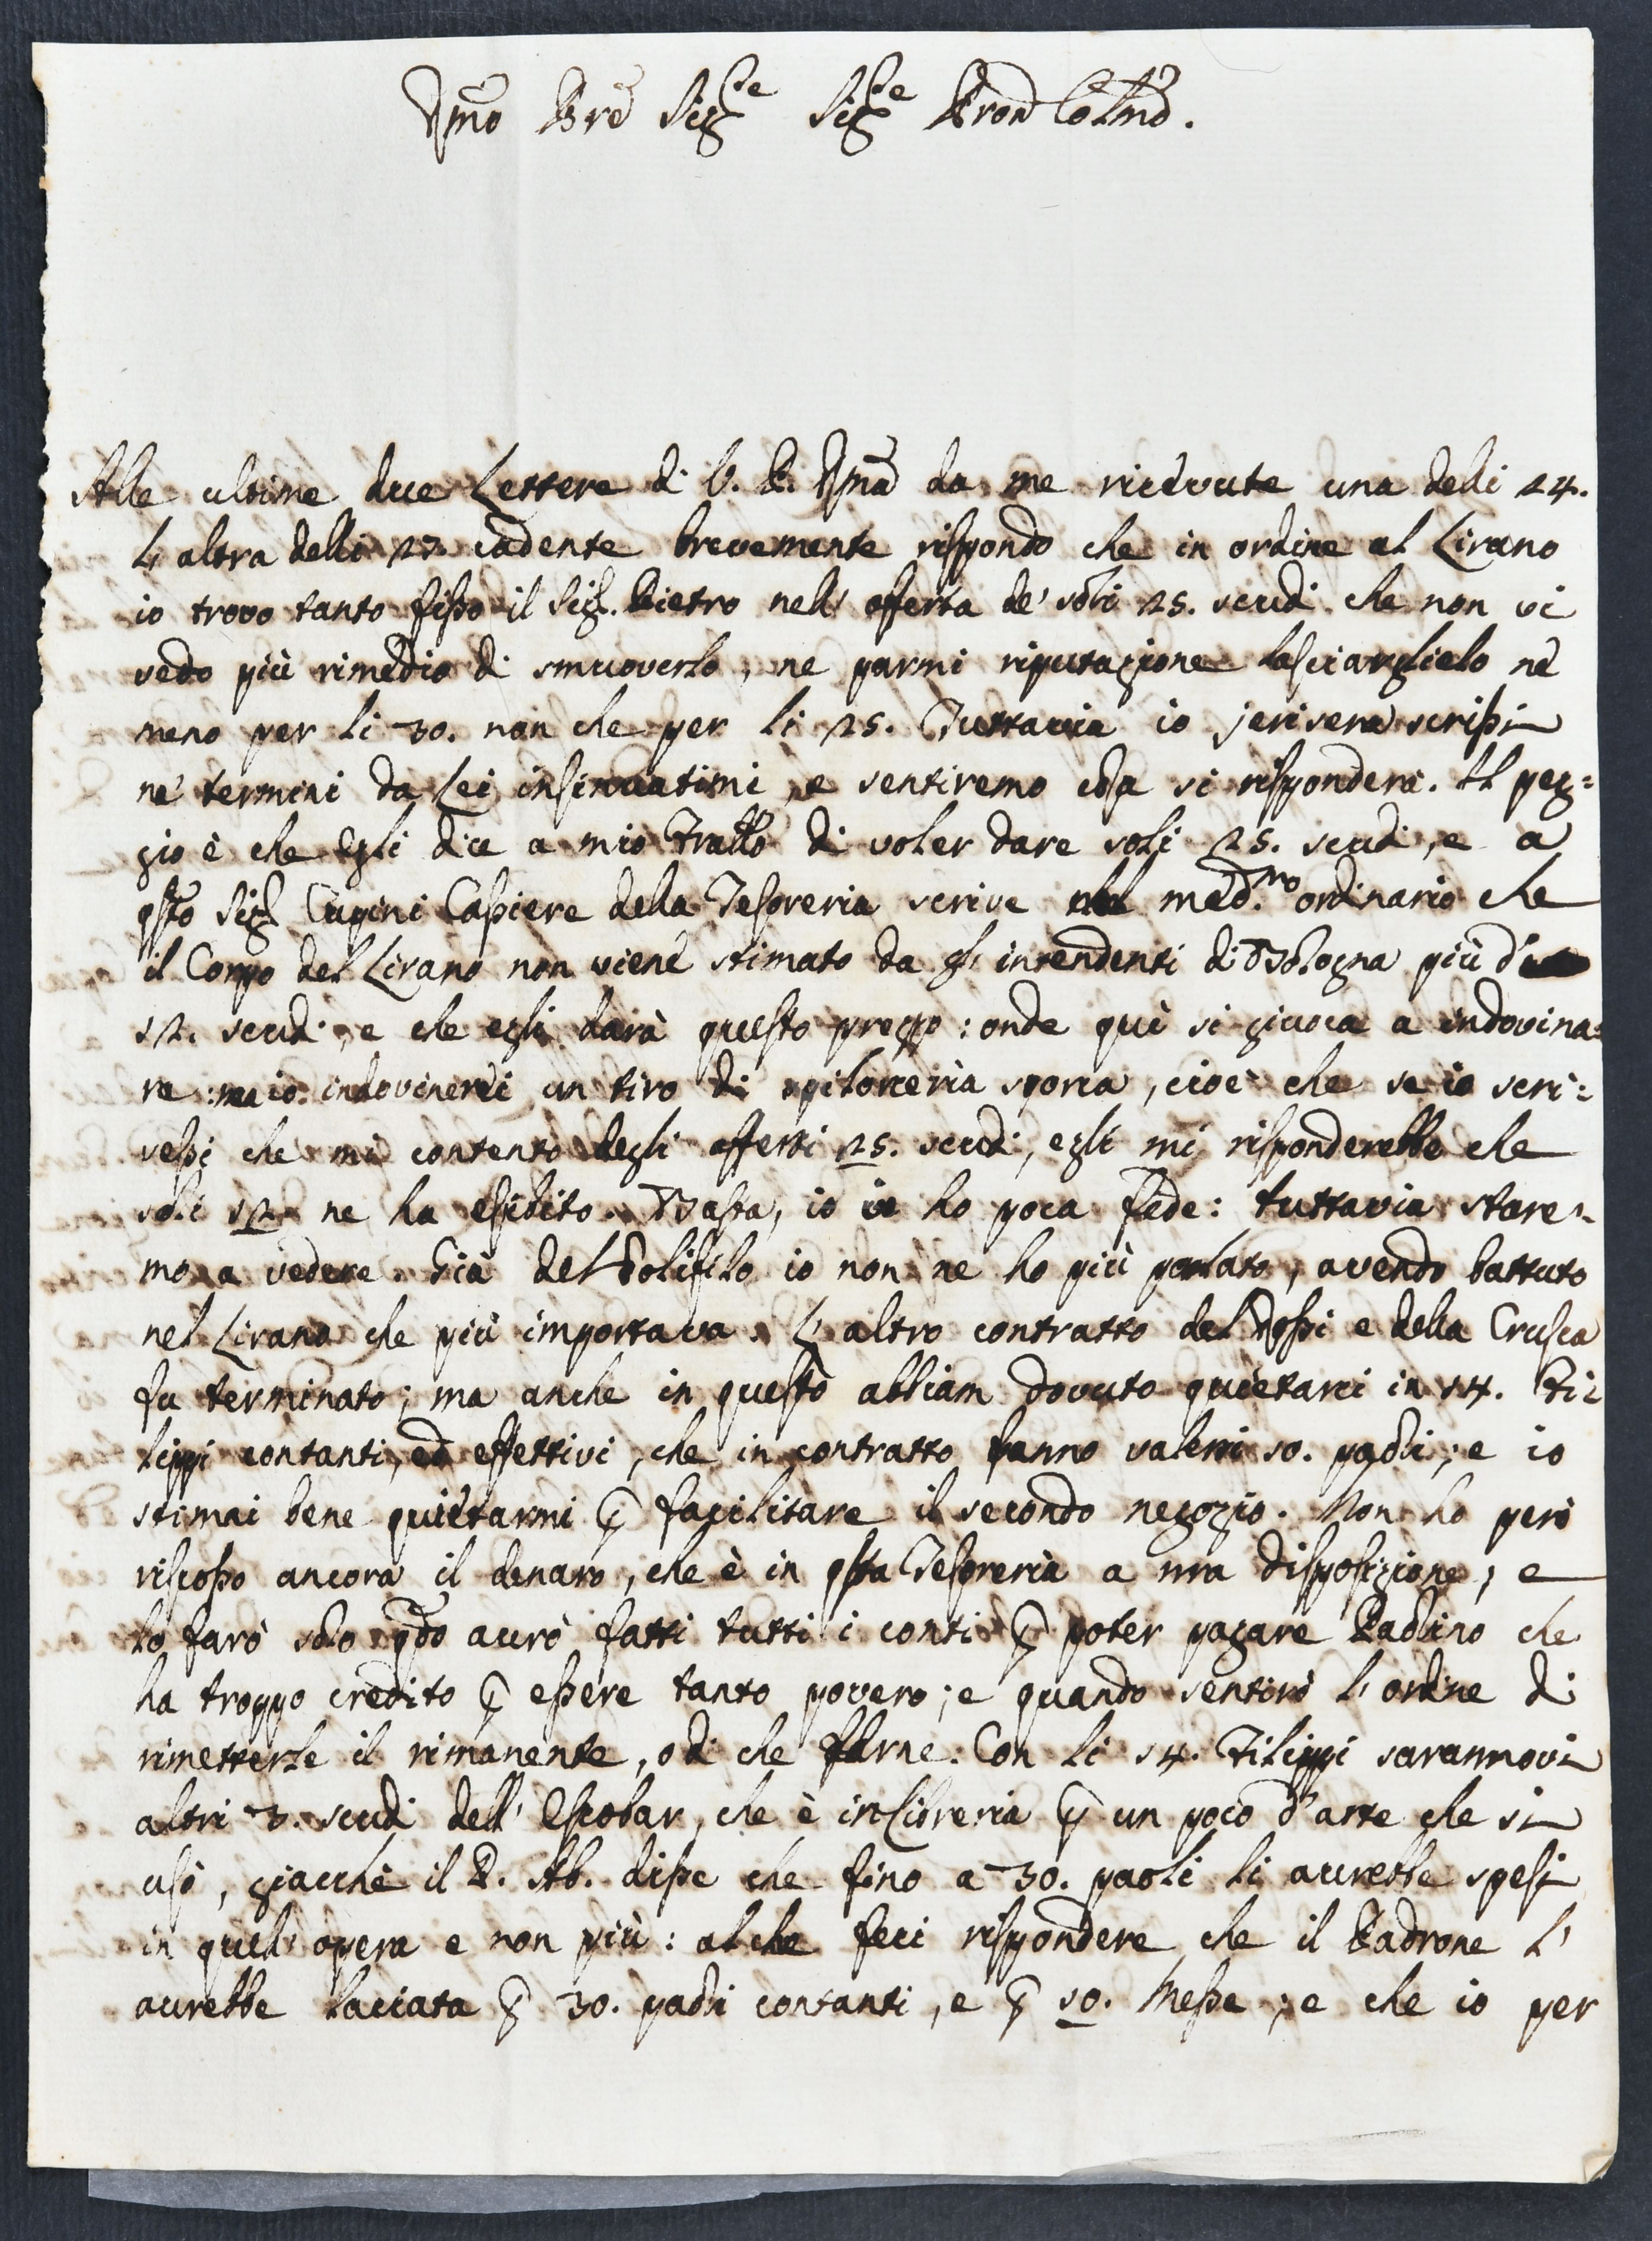 Rmo Pre Sigre Sigre Pron Colmo.
Alle ultime due Lettere di V. P. Rma da me ricevute una delli 24.
L'altra delli 27. cadente brevemente rispondo che in ordine al Lirano
io trovo tanto fisso il Sig. Pietro nell' offerta de' soli 25. scudi che non vi
vedo più rimedio di smuoverlo, ne parmi riputazione lasciarglielo nè
meno per li 30. non che per li 25. Tuttavia io jerisera scrissi
ne' termini da Lei insinuatimi, e sentiremo cosa si risponderà. Il peg=
gio è che Egli dice a mio Fratello di voler dare soli 25. scudi, e a
qsto Sig. Cupini Cassiere della Tesoreria scrive nel med.mo ordinario che
il Corpo del Lirano non viene stimato da gl' intendenti di Bologna più d'
12. scudi, e che egli darà questo prezzo: onde quì si giuoca a indovina=
re: ma io indovinerei un tiro di spilorceria sporca, cioè che se io scri=
vessi che mi contento degli offerti 25. scudi, egli mi risponderebbe che
soli 12. ne ha esibito. Basta, io ho poca fede: tuttavia stare=
mo a vedere. Già del Polifilo io non ne ho più parlato, avendo battuto
nel Lirano che più importava. L'altro contratto del Rossi e della Crusca
fu terminato; ma anche in questo abbiam dovuto quietarci in 14. Fi=
lippi contanti, ed effettivi, che in contratto fanno valersi 10. paoli; e io
stimai bene quietarmi p facilitare il secondo negozio. Non ho però
riscosso ancora il denaro, che è in qsta Tesoreria a mia disposizione; e
lo farò solo qdo avrò fatti tutti i conti p poter pagare Paolino che
ha troppo credito p essere tanto povero; e quando sentirò l'ordine di
rimetterle il rimanente, o di che farne. Con li 14. Filippi sarannovi
altri 3. scudi dell' Escobar, che è in Libreria p un poco d'arte che si
usò, giacchè il P. Ab. disse che fino a 30. paoli li avrebbe spesi
in quell' opera e non più: al che feci rispondere che il Padrone l'
avrebbe lasciata p 30. paoli contanti, e p 10. Messe; e che io per